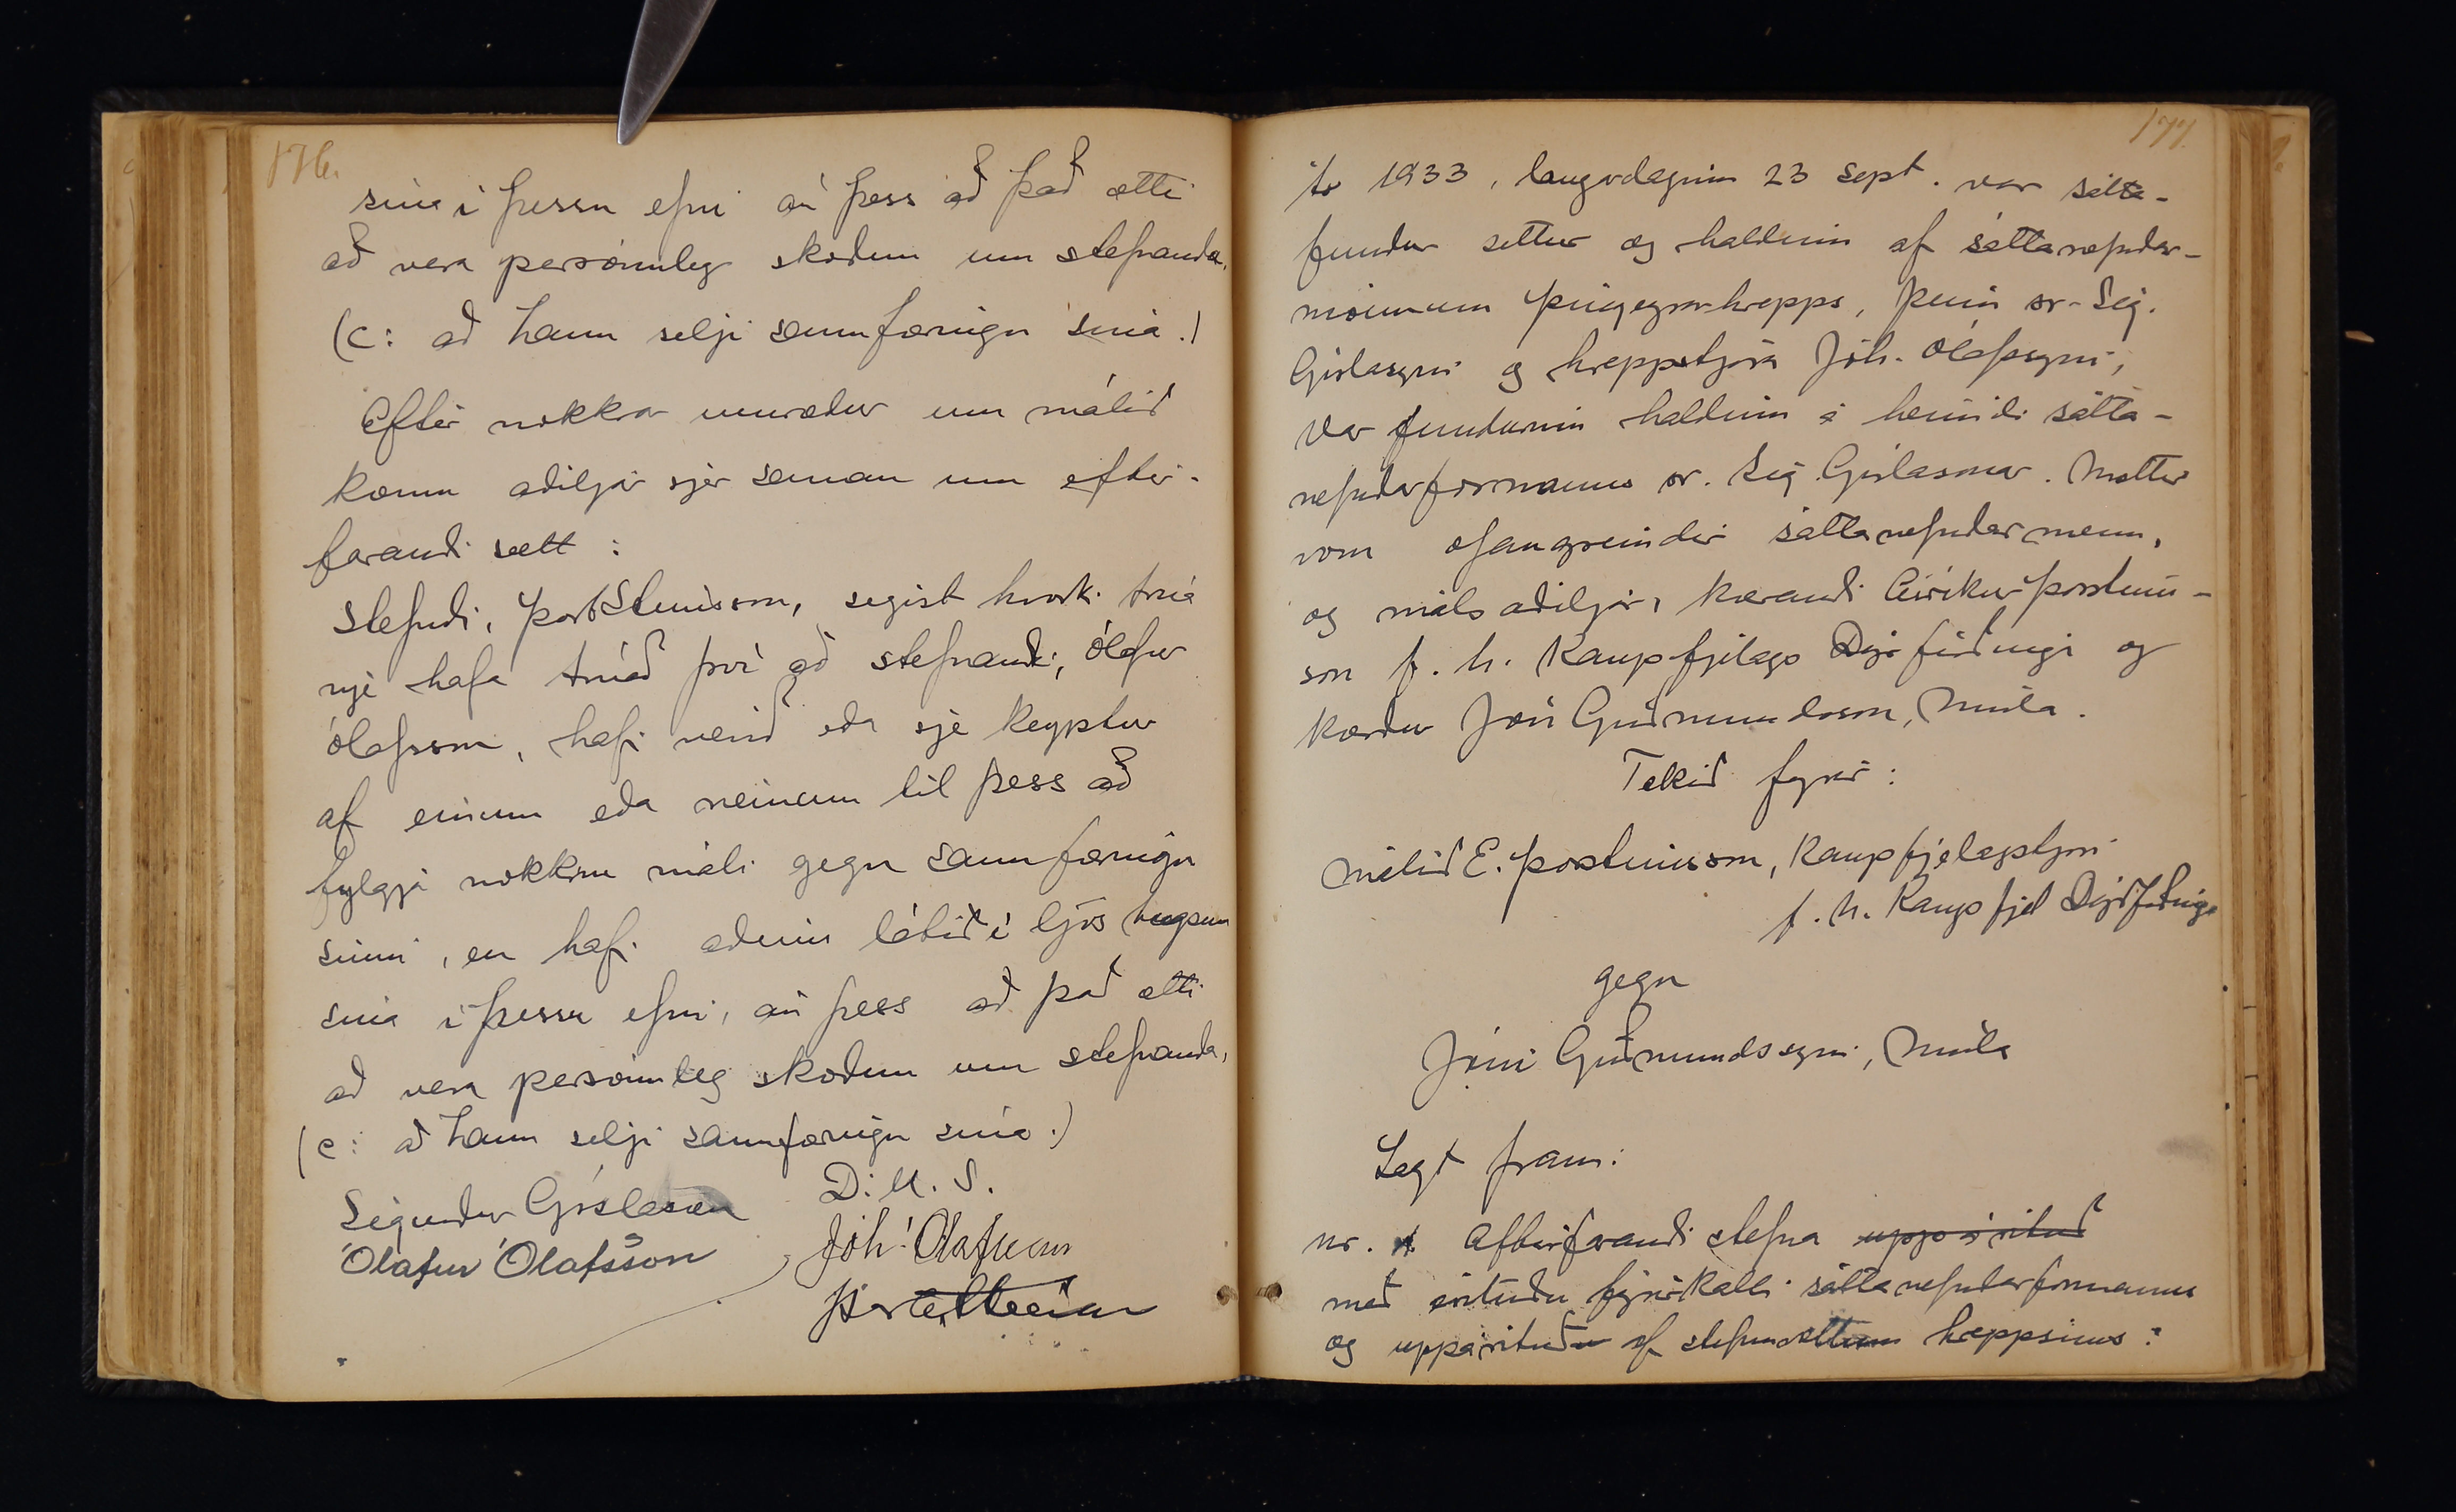 176.
sína í þessu efni án þess að það ætti
að vera persónuleg skoðun um stefnanda,
(c: að hann selji sannfæringu sína.)
Eftir nokkra umræður um málið
komu aðiljar sjer saman um eftir-
farandi sætt:
Stefndi, Þorst Steinsson, segist hvorki trúa
nje hafa trúað því að stefnandi, Ólafur
Ólafsson, hafi verið eða sje keyptur
af einum eða neinum til þess að
fylgja nokkru máli gegn sannfæringu
sinni, en hafi aðeins látið í ljós hugsun
sína í þessu efni, án þess að það ætti
að vera persónuleg skoðun um stefnanda,
(c: að hann selji sannfæringu sína.)
D. U. S.
Sigurður Gíslason
Jóh. Ólafsson
Ólafur Ólafsson
177.
Ár 1933, laugardaginn 23 sept. var sátta-
fundur settur og haldinn af sáttanefndar-
mönnum Þingeyrarhrepps, þeim sr. Sig.
Gíslasyni og hreppstjóra Jóh. Ólafssyni,
Var fundurinn haldinn á heimili sátta-
nefndarformanns sr. Sig. Gíslasonar. Mættir
voru ofangreindir sáttanefndarmenn,
og málsaðiljar, kærandi Eiríkur Þorsteins-
son f. h. Kaupfjelags Dýrfirðinga og
kærður Jón Guðmundsson, Múla.
Tekið fyrir:
Málið E. Þorsteinsson, kaupfjelagsstjóri
f. h. Kaupfjel Dýrfirðinga
gegn
Jóni Guðmundssyni, Múla
Lagt fram:
nr. 1. Eftirfarandi stefna uppárituð
með árituðu fyrirkalli sáttanefndarformanns
og uppárituðu af stefnuvottum hreppsins: